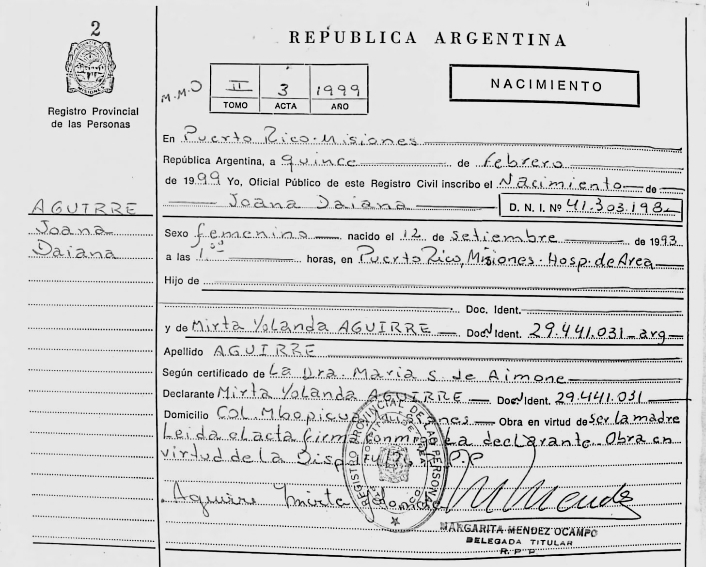 2
Registro Provincial
de las Personas
AGUIRRE
Joana
Daiana
REPUBLICA ARGENTINA
M.M.O
II 3 1999
TOMO ACTA AÑO
NACIMIENTO
En Puerto Rico-Misiones
República Argentina, a quince de febrero
de 1999 Yo, Oficial Público de este Registro Civil inscribo el Nacimiento de
Joana Daiana D. N. I. Nº 41.303.198
Sexo femenino nacido el 12 de setiembre de 1993
a las 1 horas, en Puerto Rico, Misiones-Hosp. de Area
Hijo de
Doc. Ident.
y de Mirta Yolanda AGUIRRE Doc. Ident. 29.441.031 arg
Apellido AGUIRRE
Según certificado de La Dra. Maria S de Aimone
Declarante Mirta Yolanda AGUIRRE Doc. Ident. 29.441.031
Domicilio COL. Mbopicua Misiones Obra en virtud de ser la madre
Leida el acta firma conmigo la declarante. Obra en
virtud de la Disp P.P
Aguirre Mirta Yolanda
REGISTRO PROVINCIAL DE LAS PERSONAS
MARGARITA MENDEZ OCAMPO
DELEGADA TITULAR
R. P. P